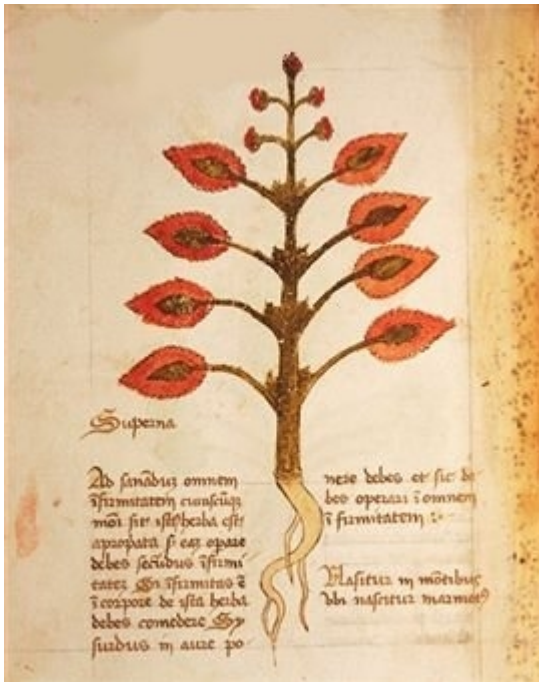 Superna
Ad sanãduz omnem
ĩfirmitatem cuiuscũqz
mõi sit ista herba est
apropata si eaz opare
debes secũdus ĩfirmi
tatez Si ĩfirmitas ẽ
ĩ corpore de ista herba
debes comedere Sy
surdus in aure po
nere debes et sic de
bes operari ĩ omnem
ĩ firmitatem :·
Nasitur in mõtibus
vbi nascitur marmor